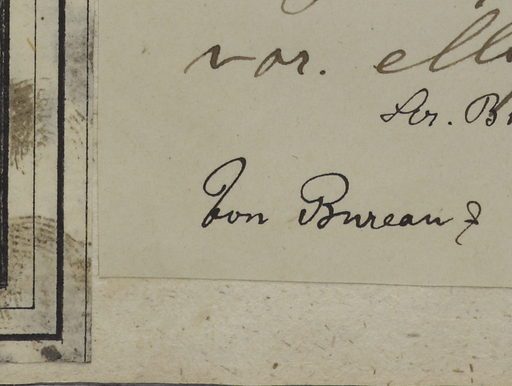 vor. ell
Scr. B
Von Bureau